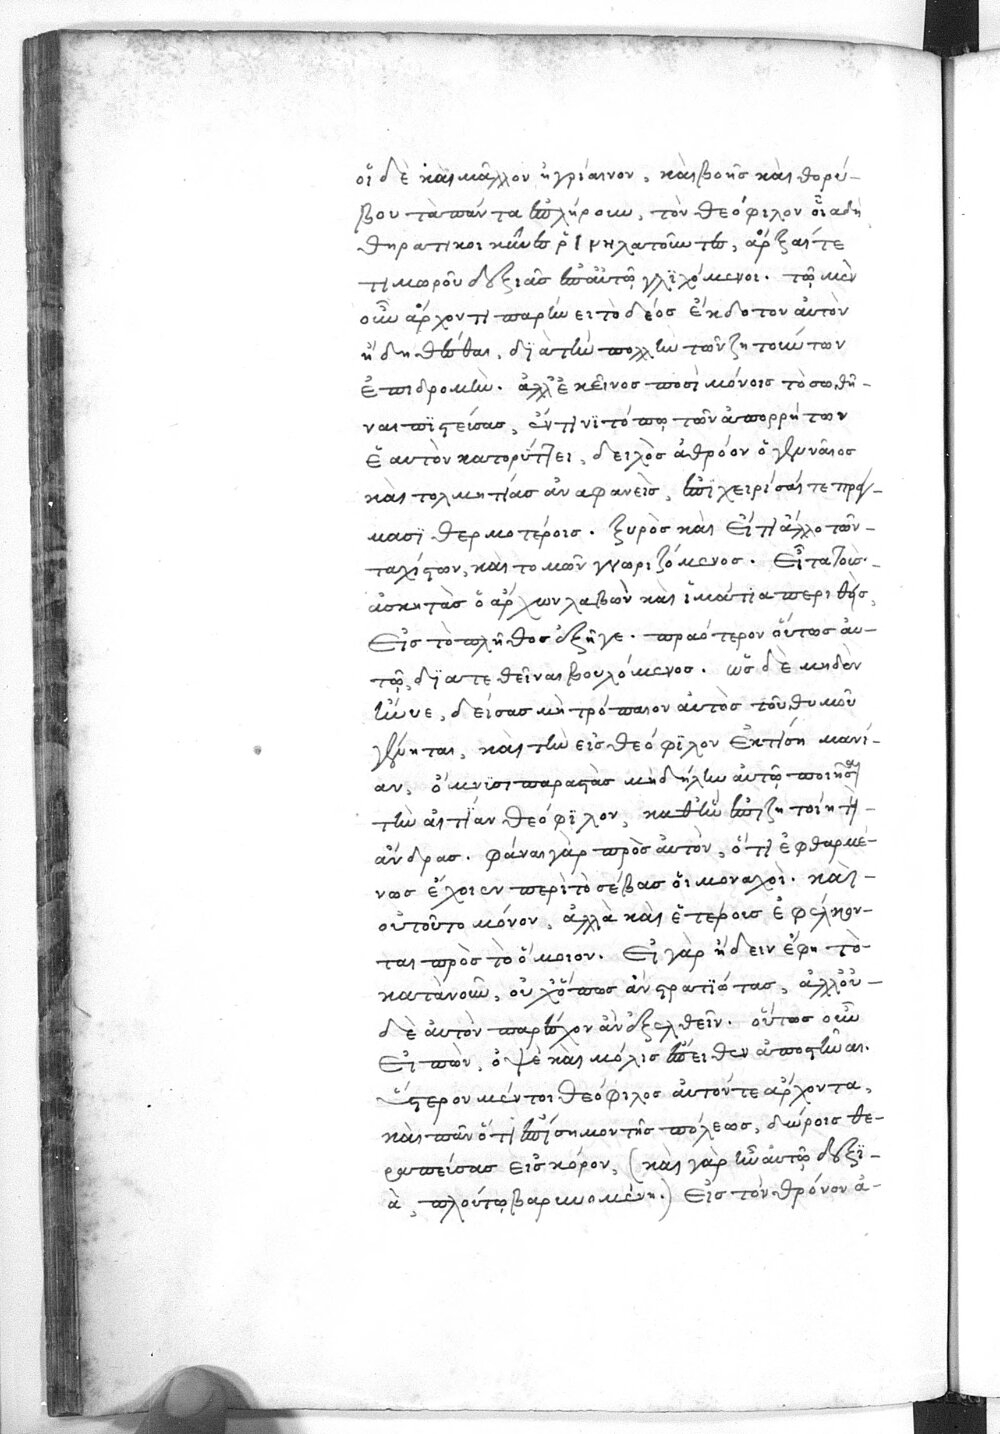 οἱ δὲ καὶ μᾶλλον ἠγρίαινον, καὶ βοῆς καὶ θορύ-
βου τὰ πάντα ἐπλήρουν, τὸν θεόφιλον οἷα δὴ
θηρατικοὶ κύνες ῥινηλατοῦντες, ἄρξαι τε
τιμωροῦ δεξιᾶς ἐπ' αὐτῷ γλιχόμενοι. τῷ μὲν
οὖν ἄρχοντι παρῄνει τὸ δέος ἔκδοτον αὐτὸν
ἤδη θέσθαι, διὰ τὴν πολλὴν τῶν ζητούντων
ἐπιδρομήν. ἀλλ' ἐκεῖνος ποσὶ μόνοις τὸ σωθῆ-
ναι πιστεύσας, ἔν τινι τόπῳ τῶν ἀπορρήτων
ἑαυτὸν κατορύττει, δειλὸς ἀθρόον ὁ γεννάιος
καὶ τολμητίας ἀναφανεὶς, ἐπιχειρήσας τε πράγ-
μασι θερμοτέροις. ξυρὸς καὶ εἴ τι ἄλλο τῶν
ταχίστων, καὶ τομῶν γνωριζόμενος. εἶτα τοὺς
ἀσκητὰς ὁ ἄρχων λαβὼν καὶ ἱμάτια περιθεὶς,
εἰς τὸ πλῆθος ἐξῆγε. πραότερον οὕτως αὐ-
τῷ, διατεθεῖναι βουλόμενος. ὡς δὲ μηδὲν
ἤνυε, δείσας μὴ τρόπαιον αὐτὸς τοῦ θυμοῦ
γένηται, καὶ τὴν εἰς θεόφιλον ἐκτίσῃ μανί-
αν, ὄμνυσι παραστὰς μὴ δήλην αὐτῷ ποιῆσαι
τὴν αἰτίαν θεόφιλον, καθ' ἣν ἐπιζητοίη τοὺς
ἄνδρας. φάναι γὰρ πρὸς αὐτὸν, ὅτι ἐφθαρμέ-
νως ἔχοιεν περὶ τὸ σέβας οἱ μοναχοὶ. καὶ
οὐ τοῦτο μόνον, ἀλλὰ καὶ ἑτέροις ἐφέλκον-
ται πρὸς τὸ ὅμοιον. εἰ γὰρ ᾔδειν ἔφη τὸ
κατὰ νοῦν, οὐχ ὅπως ἂν στρατιώτας, ἀλλ' οὐ-
δὲ αὐτὸν παρέσχον ἂν ἐξελθεῖν. οὕτως οὖν
εἰπὼν, ὀψὲ καὶ μόλις ἔπειθεν ἀποστῆναι.
ὕστερον μέντοι θεόφιλος αὐτόν τε ἄρχοντα,
καὶ πᾶν ὅτι ἐπίσημον τῆς πόλεως, δώροις θε-
ραπεύσας εἰς κόρον, (καὶ γὰρ ἦν αὐτῷ δεξι-
ὰ, πλούτῳ βαρυνομένη.) εἰς τὸν θρόνον ἀ-